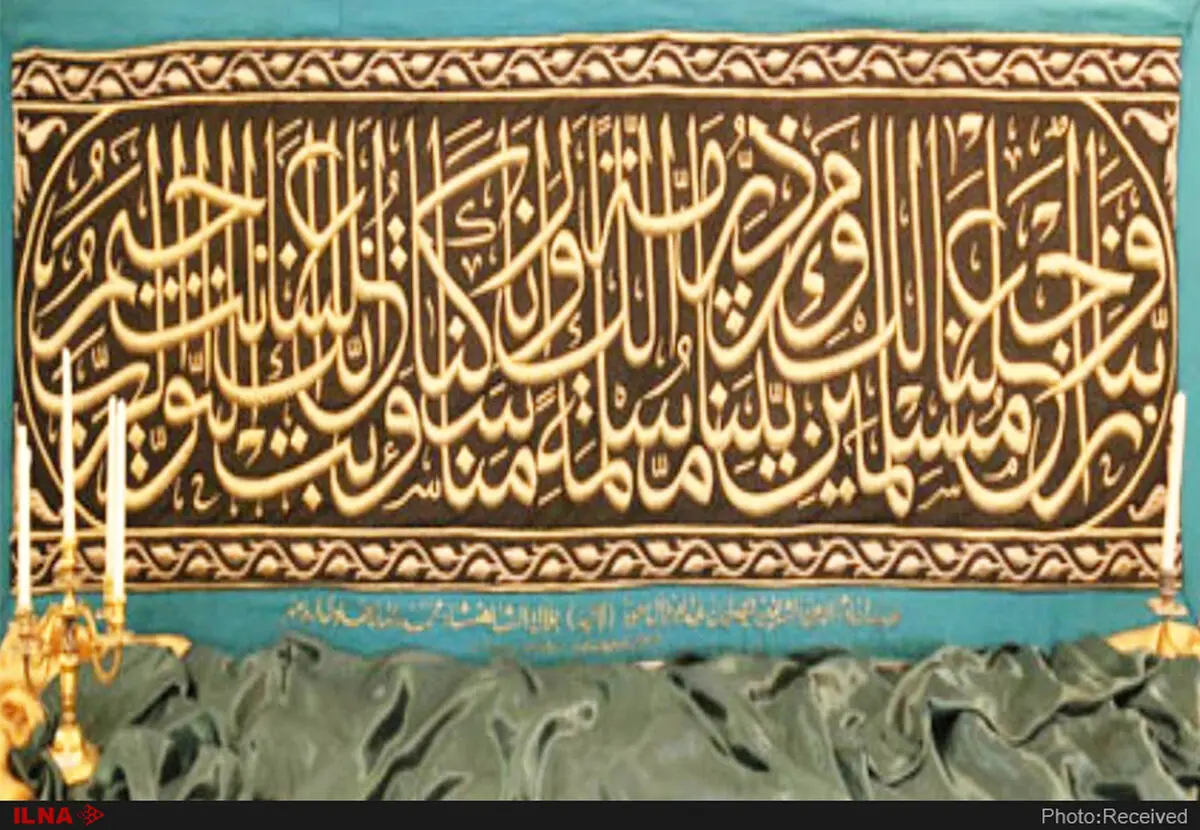 ربنا واجعلنا مسلمين لك ومن ذريتنا أمة مسلمة لك وأرنا مناسكنا وتب علينا إنك أنت التواب الرحيم
ILNA
Photo:Received